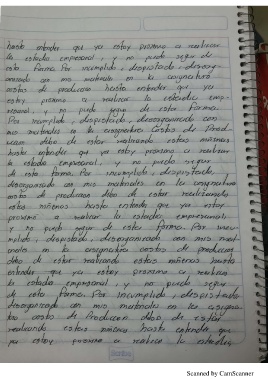 hasta entender que ya estoy proximo a realizar
la estadia empresarial, y no puedo seguir de
esta forma. Por incumplido, despistado, desorg-
anizado con mis materiales en la asignatura
costos de produccion hasta entender que ya
estoy proximo a realizar la estadia emp-
resarial, y no puedo seguir de esta forma.
Por incumplido, despistado, desorganizado con
mis materiales en la asignatura Costos de Prod-
uccion debo de estar realizando estas miñonas
hasta entender que ya estoy proximo a realizar
la estadia empresarial, y no puedo seguir
de esta forma. Por incumplido, despistado,
desorganizado con mis materiales en la asignatura
costos de produccion debo de estar realizando
estas miñonas hasta entender que ya estoy
proximo a realizar la estadia empresarial,
y no puedo seguir de esta forma. Por incu-
mplido, despistado, desorganizado con mis mate-
riales en la asignatura costos de produccion
debo de estar realizando estas miñonas hasta
entender que ya estoy proximo a realizar
la estadia empresarial, y no puedo seguir
de esta forma. Por incumplido, despistado
desorganizado con mis materiales en la asigna-
tura costos de Produccion debo de estar
realizando estas miñonas hasta entender que
ya estoy proximo a realizar la estadia
Scanned by CamScanner